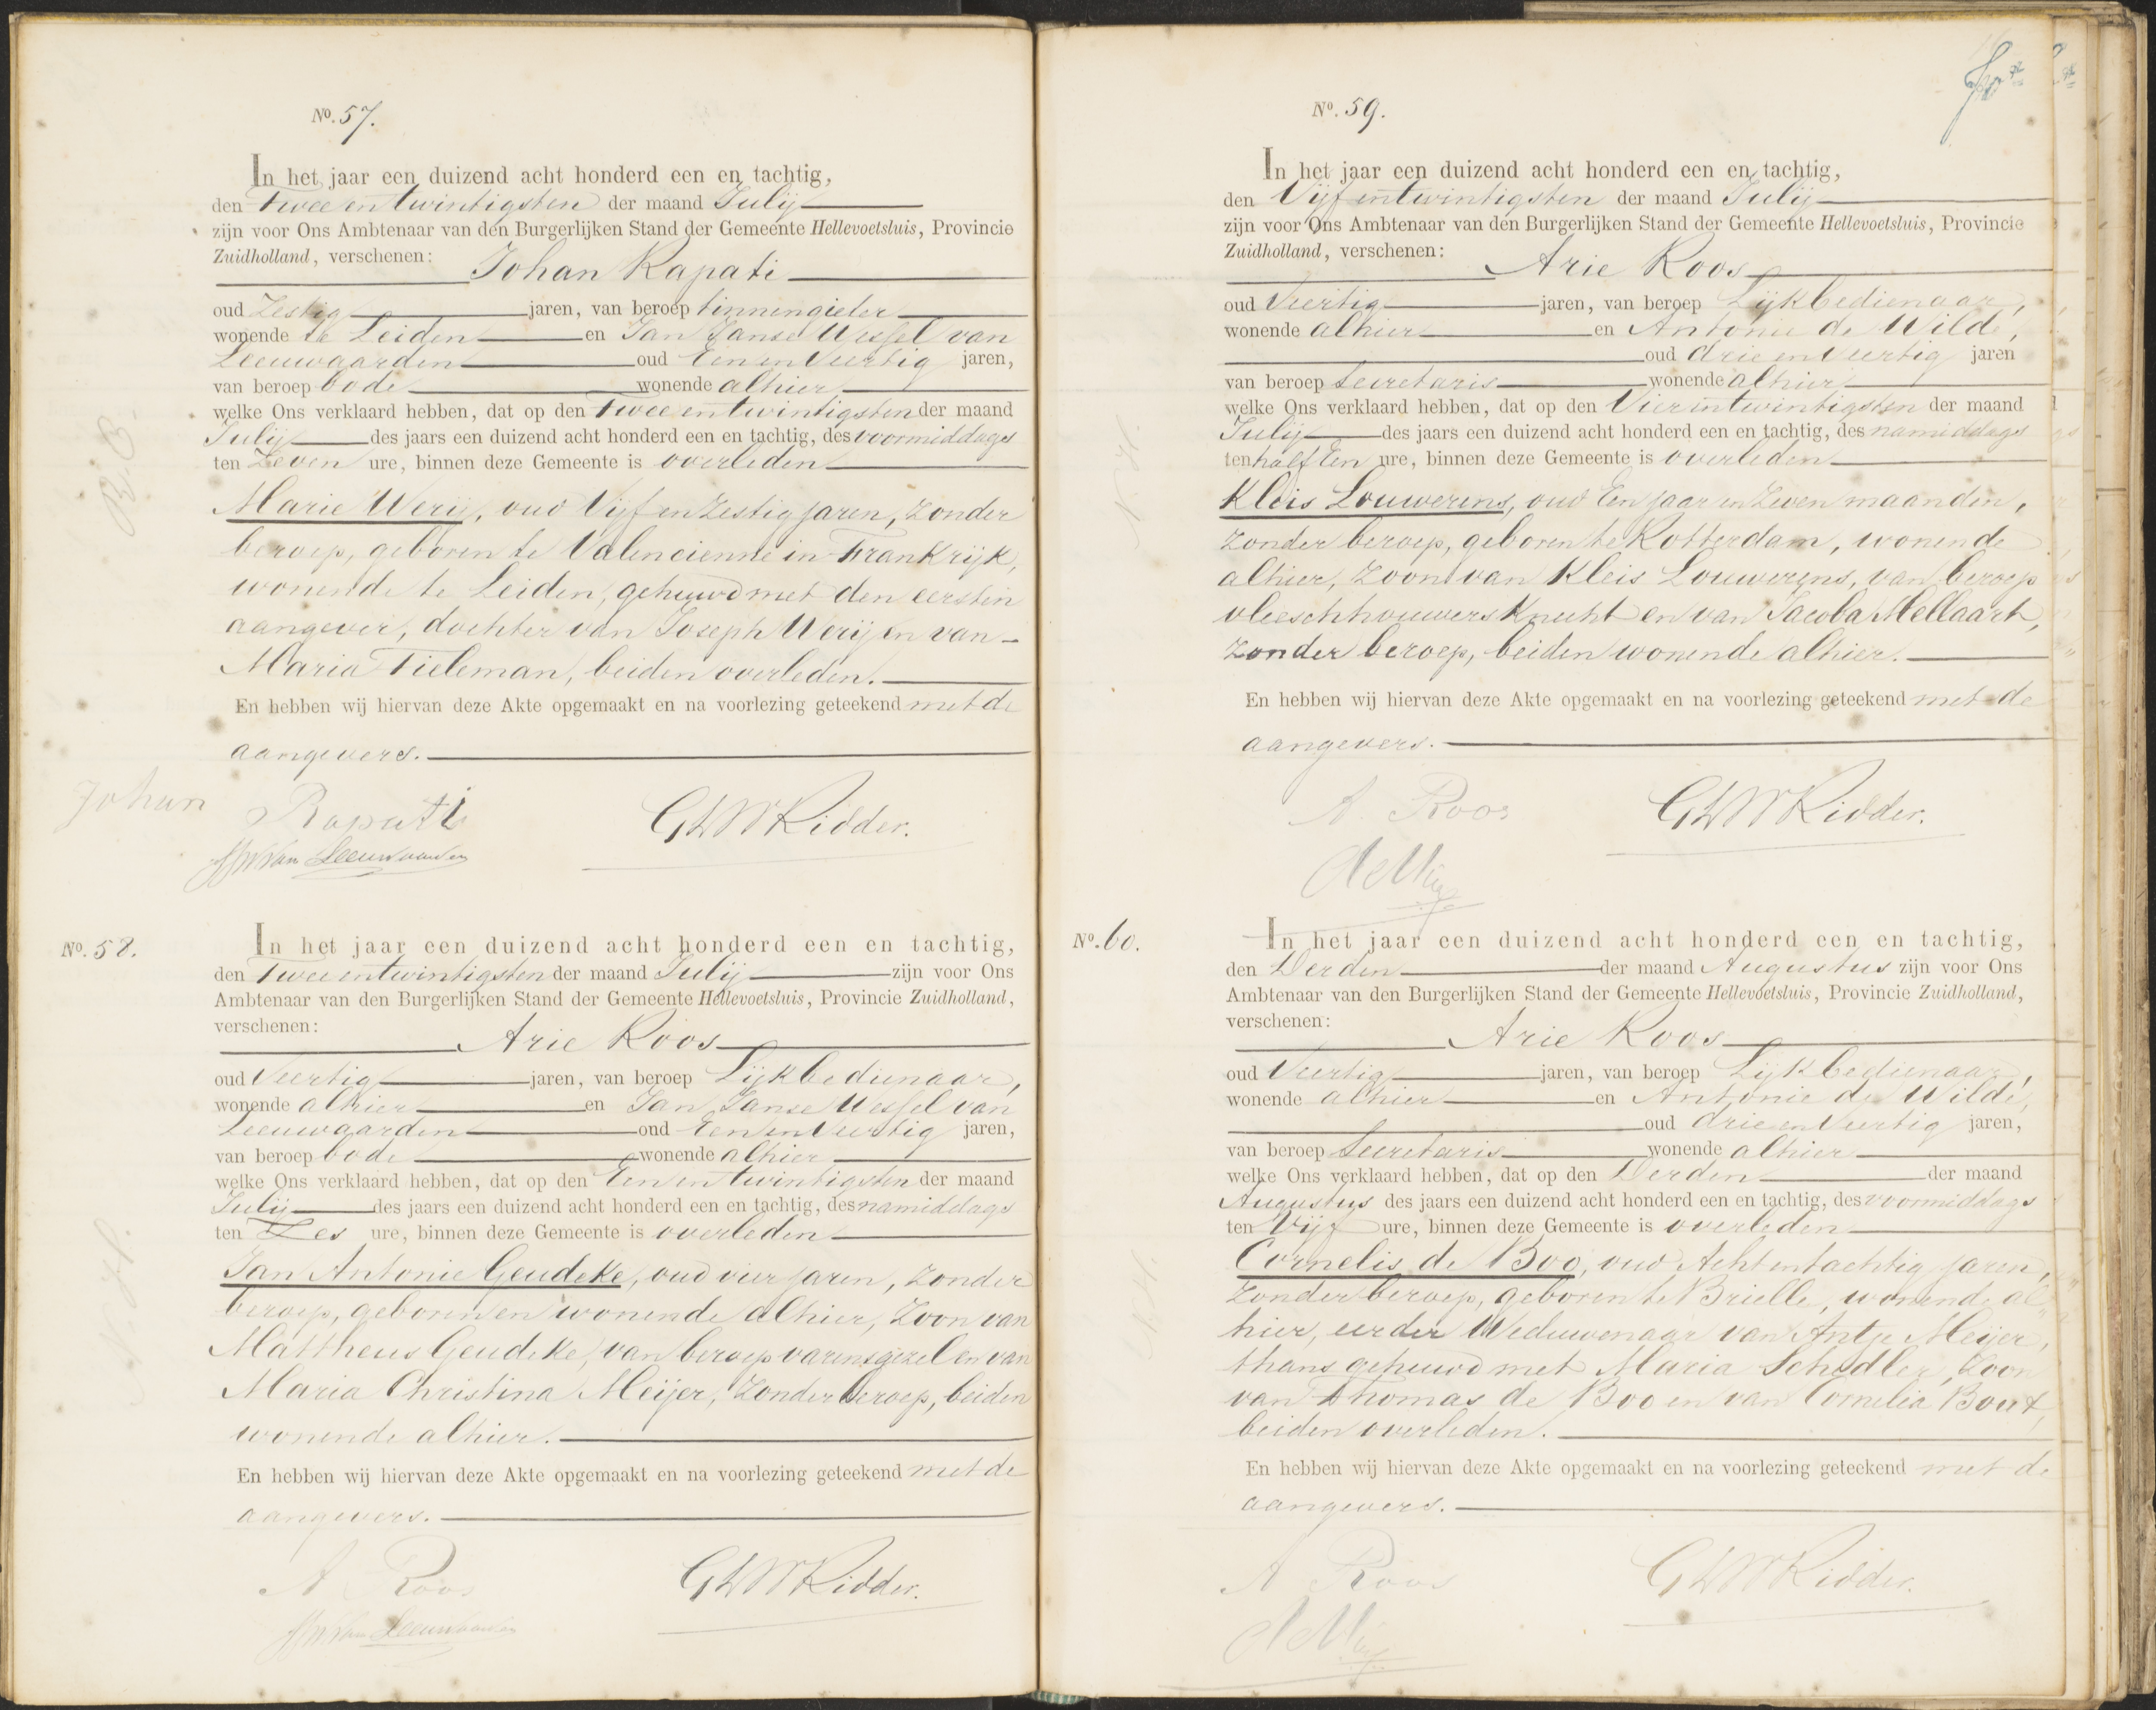 No. 57.
In het jaar een duizend acht honderd een en tachtig,
den Twee en twintigsten der maand Julij
zijn voor Ons Ambtenaar van den Burgerlijken Stand der Gemeente Hellevoetsluis, Provincie
Zuidholland, verschenen: Johan Rapati
oud Zestig jaren, van beroep tinnengieter
wonende te Leiden en Jan Janse Wessel van
Leeuwaarden oud Een en Veertig jaren,
van beroep bode wonende alhier
welke Ons verklaard hebben, dat op den Twee en twintigsten der maand
Julij des jaars een duizend acht honderd een en tachtig, des voormiddags
ten Zeven ure, binnen deze Gemeente is overleden
Marie Werij, oud Vijf en Zestig jaren, zonder
beroep, geboren te Valencienne in Frankrijk,
wonende te Leiden, gehuwd met den eersten
aangever, dochter van Joseph Werij en van
Maria Tieleman, beiden overleden.
En hebben wij hiervan deze Akte opgemaakt en na voorlezing geteekend met de
aangevers.
R.C.
Johan Rapati GLWRidder.
JJW van Leeuwaarden
No. 58.
In het jaar een duizend acht honderd een en tachtig,
den Twee en twintigsten der maand Julij zijn voor Ons
Ambtenaar van den Burgerlijken Stand der Gemeente Hellevoetsluis, Provincie Zuidholland,
verschenen: Arie Roos
oud Veertig jaren, van beroep Lijkbedienaar,
wonende alhier en Jan Janse Wessel van
Leeuwaarden oud Een en Veertig jaren,
van beroep bode wonende alhier
welke Ons verklaard hebben, dat op den Een en twintigsten der maand
Julij des jaars een duizend acht honderd een en tachtig, des namiddags
ten Zes ure, binnen deze Gemeente is overleden
Jan Antonie Geudeke, oud vier jaren, zonder
beroep, geboren en wonende alhier, Zoon van
Mattheus Geudeke, van beroep varensgezel en van
Maria Christina Meijer, zonder beroep, beiden
wonende alhier.
En hebben wij hiervan deze Akte opgemaakt en na voorlezing geteekend met de
aangevers.
N.H.
A Roos GLWRidder.
JJW van Leeuwaarden
No. 59.
In het jaar een duizend acht honderd een en tachtig,
den Vijf en twintigsten der maand Julij
zijn voor Ons Ambtenaar van den Burgerlijken Stand der Gemeente Hellevoetsluis, Provincie
Zuidholland, verschenen: Arie Roos
oud Veertig jaren, van beroep Lijkbedienaar,
wonende alhier en Antonie de Wilde,
oud drie en Veertig jaren
van beroep Secretaris wonende alhier
welke Ons verklaard hebben, dat op den Vier en twintigsten der maand
Julij des jaars een duizend acht honderd een en tachtig, des namiddags
ten half Een ure, binnen deze Gemeente is overleden
Kleis Louwerens, oud Een jaar en Zeven maanden,
zonder beroep, geboren te Rotterdam, wonende
alhier, Zoon van Kleis Louwerens, van beroep
vleeschhouwersknecht en van Jacoba Mellaart,
zonder beroep, beiden wonende alhier.
En hebben wij hiervan deze Akte opgemaakt en na voorlezing geteekend met de
aangevers.
N.H.
A. Roos GLWRidder.
No. 60.
In het jaar een duizend acht honderd een en tachtig,
den Derden der maand Augustus zijn voor Ons
Ambtenaar van den Burgerlijken Stand der Gemeente Hellevoetsluis, Provincie Zuidholland,
verschenen: Arie Roos
oud Veertig jaren, van beroep Lijkbedienaar,
wonende alhier en Antonie de Wilde,
oud drie en Veertig jaren,
van beroep Secretaris wonende alhier
welke Ons verklaard hebben, dat op den Derden der maand
Augustus des jaars een duizend acht honderd een en tachtig, des voormiddags
ten Vijf ure, binnen deze Gemeente is overleden
Cornelis de Boo, oud Acht en tachtig jaren,
zonder beroep, geboren te Brielle, wonende al
hier, eerder Weduwenaar van Antje Meijer,
thans gehuwd met Maria Schedler, Zoon
van Thomas de Boo en van Cornelia Bout,
beiden overleden.
En hebben wij hiervan deze Akte opgemaakt en na voorlezing geteekend met de
aangevers.
N.H.
A Roos GLWRidder.